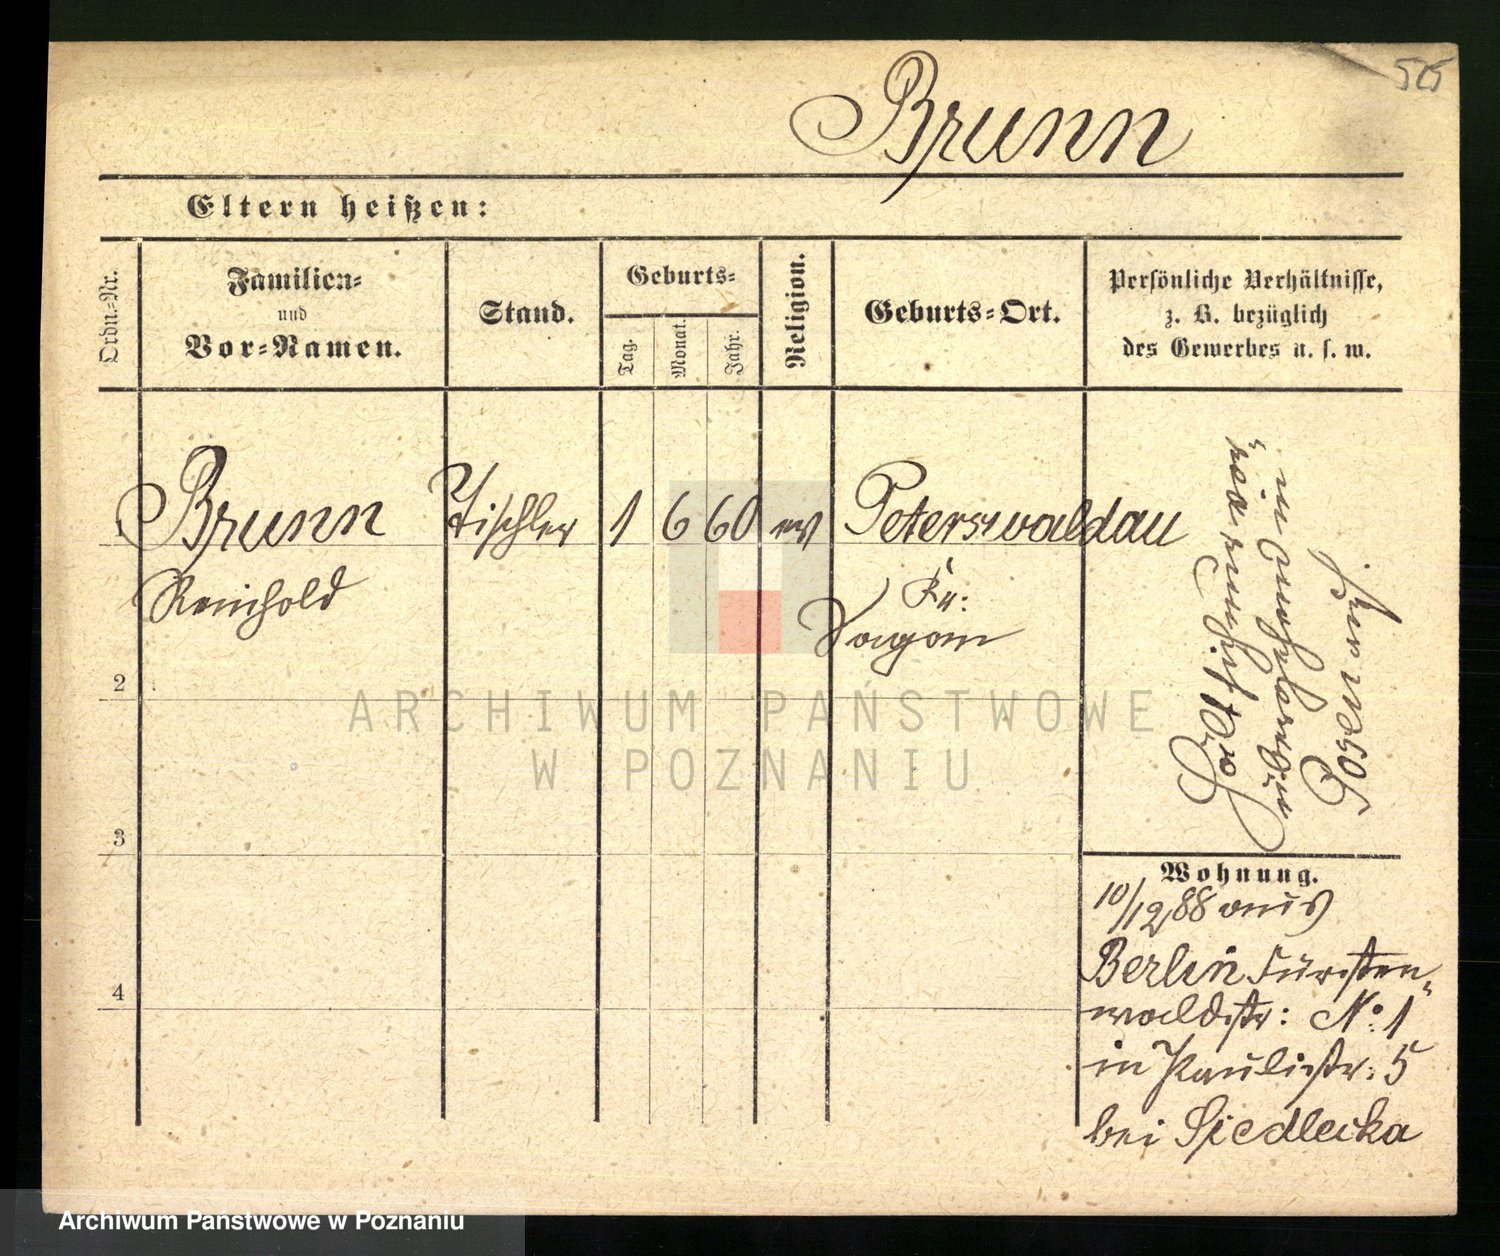 525
Brunn
Eltern heißen:
Ordn.-Nr.
Familien-
und
Vor-Namen.
Stand.
Geburts-
Tag.
Monat.
Jahr.
Religion.
Geburts-Ort.
Persönliche Verhältnisse,
z. B. bezüglich
des Gewerbes u. s. w.
Brunn Tischler 1 6 60 ev Peterswaldau
Reinhold
Kr:
Sagan
2
3
4
in Posen
Wohnung.
10/12 88 aus
Berlin Fürsten-
waldstr: No. 1
in Paulistr. 5
bei Siedlecka
ARCHIWUM PAŃSTWOWE
W POZNANIU
Archiwum Państwowe w Poznaniu